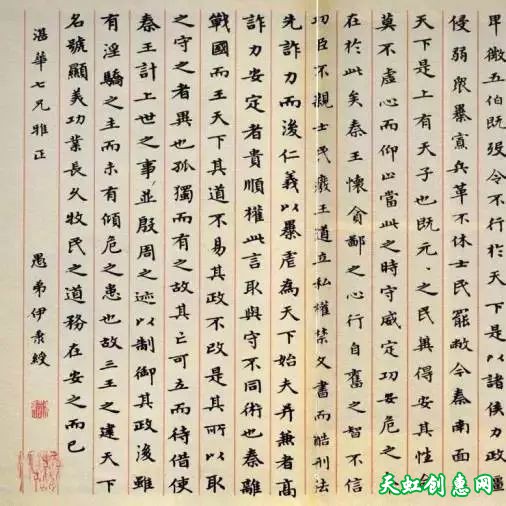 卑微五伯既殁令不行於天下是以諸侯力政彊
侵弱眾暴寡兵革不休士民罷敝今秦南面
天下是上有天子也既元、之民冀得安其性命
莫不虛心而仰上當此之時守威定功安危之
在於此矣秦王懷貪鄙之心行自奮之智不信
功臣不親士民廢王道立私權禁文書而酷刑法
先詐力而後仁義以暴虐為天下始夫并兼者高
詐力安定者貴順權此言取與守不同術也秦離
戰國而王天下其道不易其政不改是其所以取
之守之者異也孤獨而有之故其亡可立而待借使
秦王計上世之事並殷周之迹以制御其政後雖
有淫驕之主而未有傾危之患也故三王之建天下
名號顯美功業長久牧民之道務在安之而已
湛華七兄雅正
愚弟伊秉綬
天虹创惠网